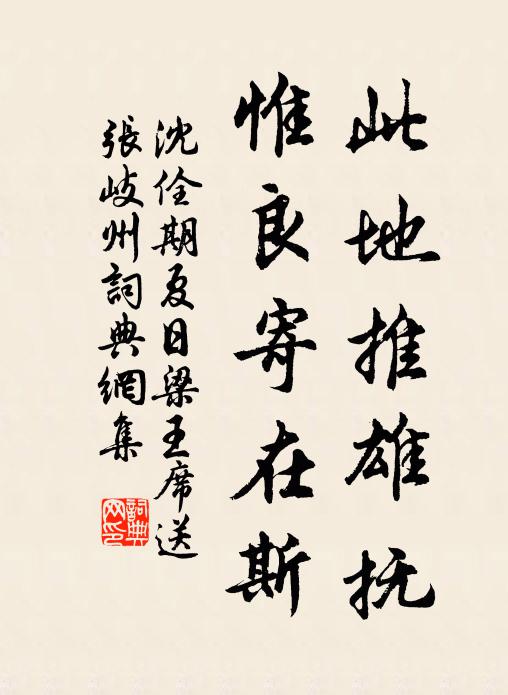 此地推雄抚
惟良寄在斯
沈佺期夏日梁王席送
張岐州詞典網集
詞典
网印